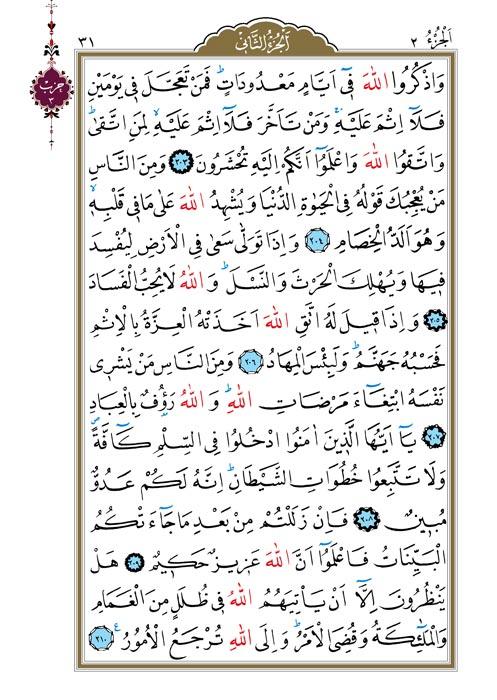 اَلْجُزْءُ ٢
اَلْجُزْءُ الثَّانِي
٣١
حزب
٣
وَاذْكُرُوا اللّٰهَ فٖٓي اَيَّامٍ مَعْدُودَاتٍ فَمَنْ تَعَجَّلَ فٖي يَوْمَيْنِ
فَلَٓا اِثْمَ عَلَيْهِ وَمَنْ تَاَخَّرَ فَلَٓا اِثْمَ عَلَيْهِ لِمَنِ اتَّقٰى
وَاتَّقُوا اللّٰهَ وَاعْلَمُٓوا اَنَّكُمْ اِلَيْهِ تُحْشَرُونَ ٢٠٣ وَمِنَ النَّاسِ
مَنْ يُعْجِبُكَ قَوْلُهُ فِي الْحَيٰوةِ الدُّنْيَا وَيُشْهِدُ اللّٰهَ عَلٰى مَا فٖي قَلْبِهٖ
وَهُوَ اَلَدُّ الْخِصَامِ ٢٠٤ وَاِذَا تَوَلّٰى سَعٰى فِي الْاَرْضِ لِيُفْسِدَ
فٖيهَا وَيُهْلِكَ الْحَرْثَ وَالنَّسْلَ وَاللّٰهُ لَا يُحِبُّ الْفَسَادَ
٢٠٥ وَاِذَا قٖيلَ لَهُ اتَّقِ اللّٰهَ اَخَذَتْهُ الْعِزَّةُ بِالْاِثْمِ
فَحَسْبُهُ جَهَنَّمُ وَلَبِئْسَ الْمِهَادُ ٢٠٦ وَمِنَ النَّاسِ مَنْ يَشْرٖي
نَفْسَهُ ابْتِغَٓاءَ مَرْضَاتِ اللّٰهِ وَاللّٰهُ رَؤُفٌ بِالْعِبَادِ
٢٠٧ يَٓا اَيُّهَا الَّذٖينَ اٰمَنُوا ادْخُلُوا فِي السِّلْمِ كَٓافَّةً
وَلَا تَتَّبِعُوا خُطُوَاتِ الشَّيْطَانِ اِنَّهُ لَكُمْ عَدُوٌّ
مُبٖينٌ ٢٠٨ فَاِنْ زَلَلْتُمْ مِنْ بَعْدِ مَا جَٓاءَتْكُمُ
الْبَيِّنَاتُ فَاعْلَمُٓوا اَنَّ اللّٰهَ عَزٖيزٌ حَكٖيمٌ ٢٠٩ هَلْ
يَنْظُرُونَ اِلَّٓا اَنْ يَاْتِيَهُمُ اللّٰهُ فٖي ظُلَلٍ مِنَ الْغَمَامِ
وَالْمَلٰٓئِكَةُ وَقُضِيَ الْاَمْرُ وَاِلَى اللّٰهِ تُرْجَعُ الْاُمُورُ ٢١٠